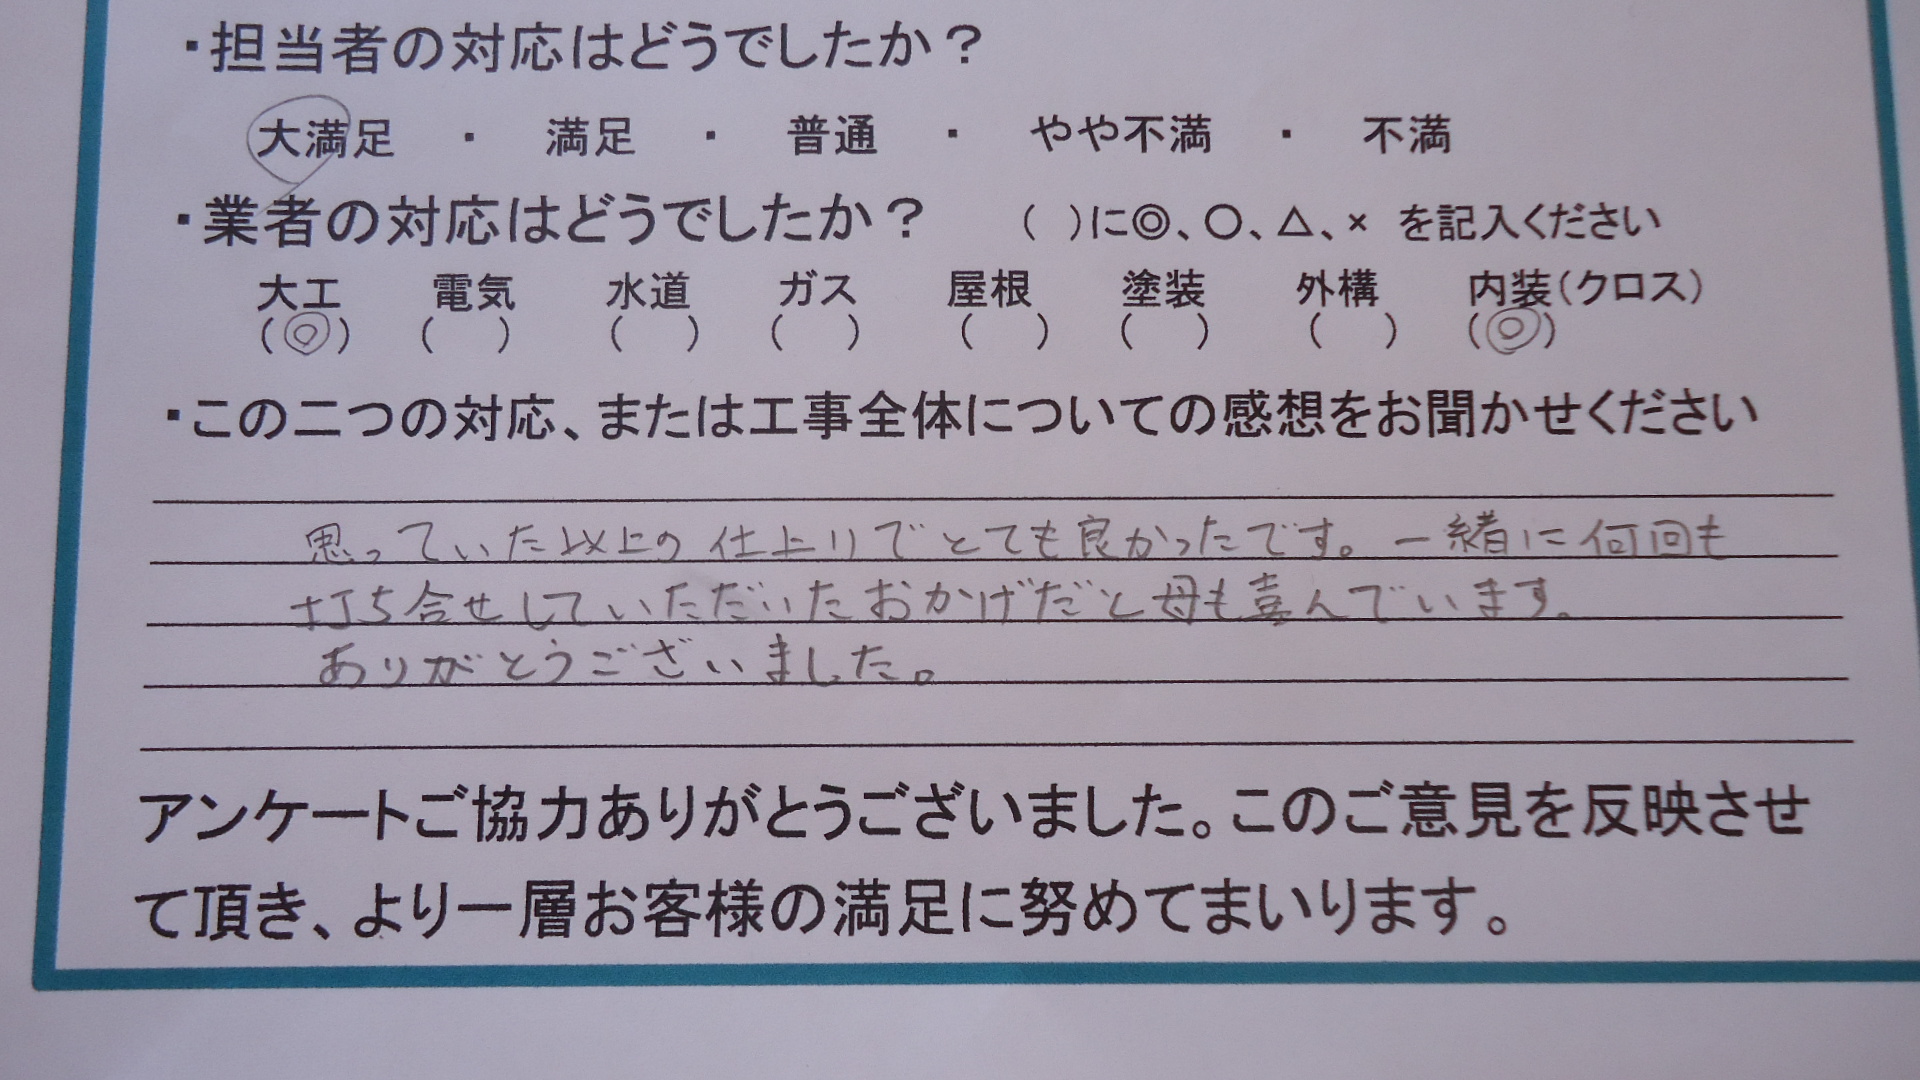 ・担当者の対応はどうでしたか？
大満足 ・ 満足 ・ 普通 ・ やや不満 ・ 不満
・業者の対応はどうでしたか？ （ ）に◎、○、△、× を記入ください
大工 電気 水道 ガス 屋根 塗装 外構 内装（クロス）
（◎） （ ） （ ） （ ） （ ） （ ） （ ） （◎）
・この二つの対応、または工事全体についての感想をお聞かせください
思っていた以上の仕上りでとても良かったです。一緒に何回も
打ち合せしていただいたおかげだと母も喜んでいます。
ありがとうございました。
アンケートご協力ありがとうございました。このご意見を反映させ
て頂き、より一層お客様の満足に努めてまいります。